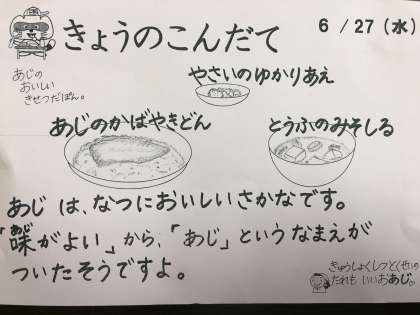 きょうのこんだて
6/27(水)
あじの
おいしい
きせつだぽん。
やさいのゆかりあえ
あじのかばやきどん
とうふのみそしる
あじは、なつにおいしいさかなです。
「味がよい」から、「あじ」というなまえが
あじ
ついたそうですよ。
きゅうしょくしつとくせいの
たれも いいおあじ。